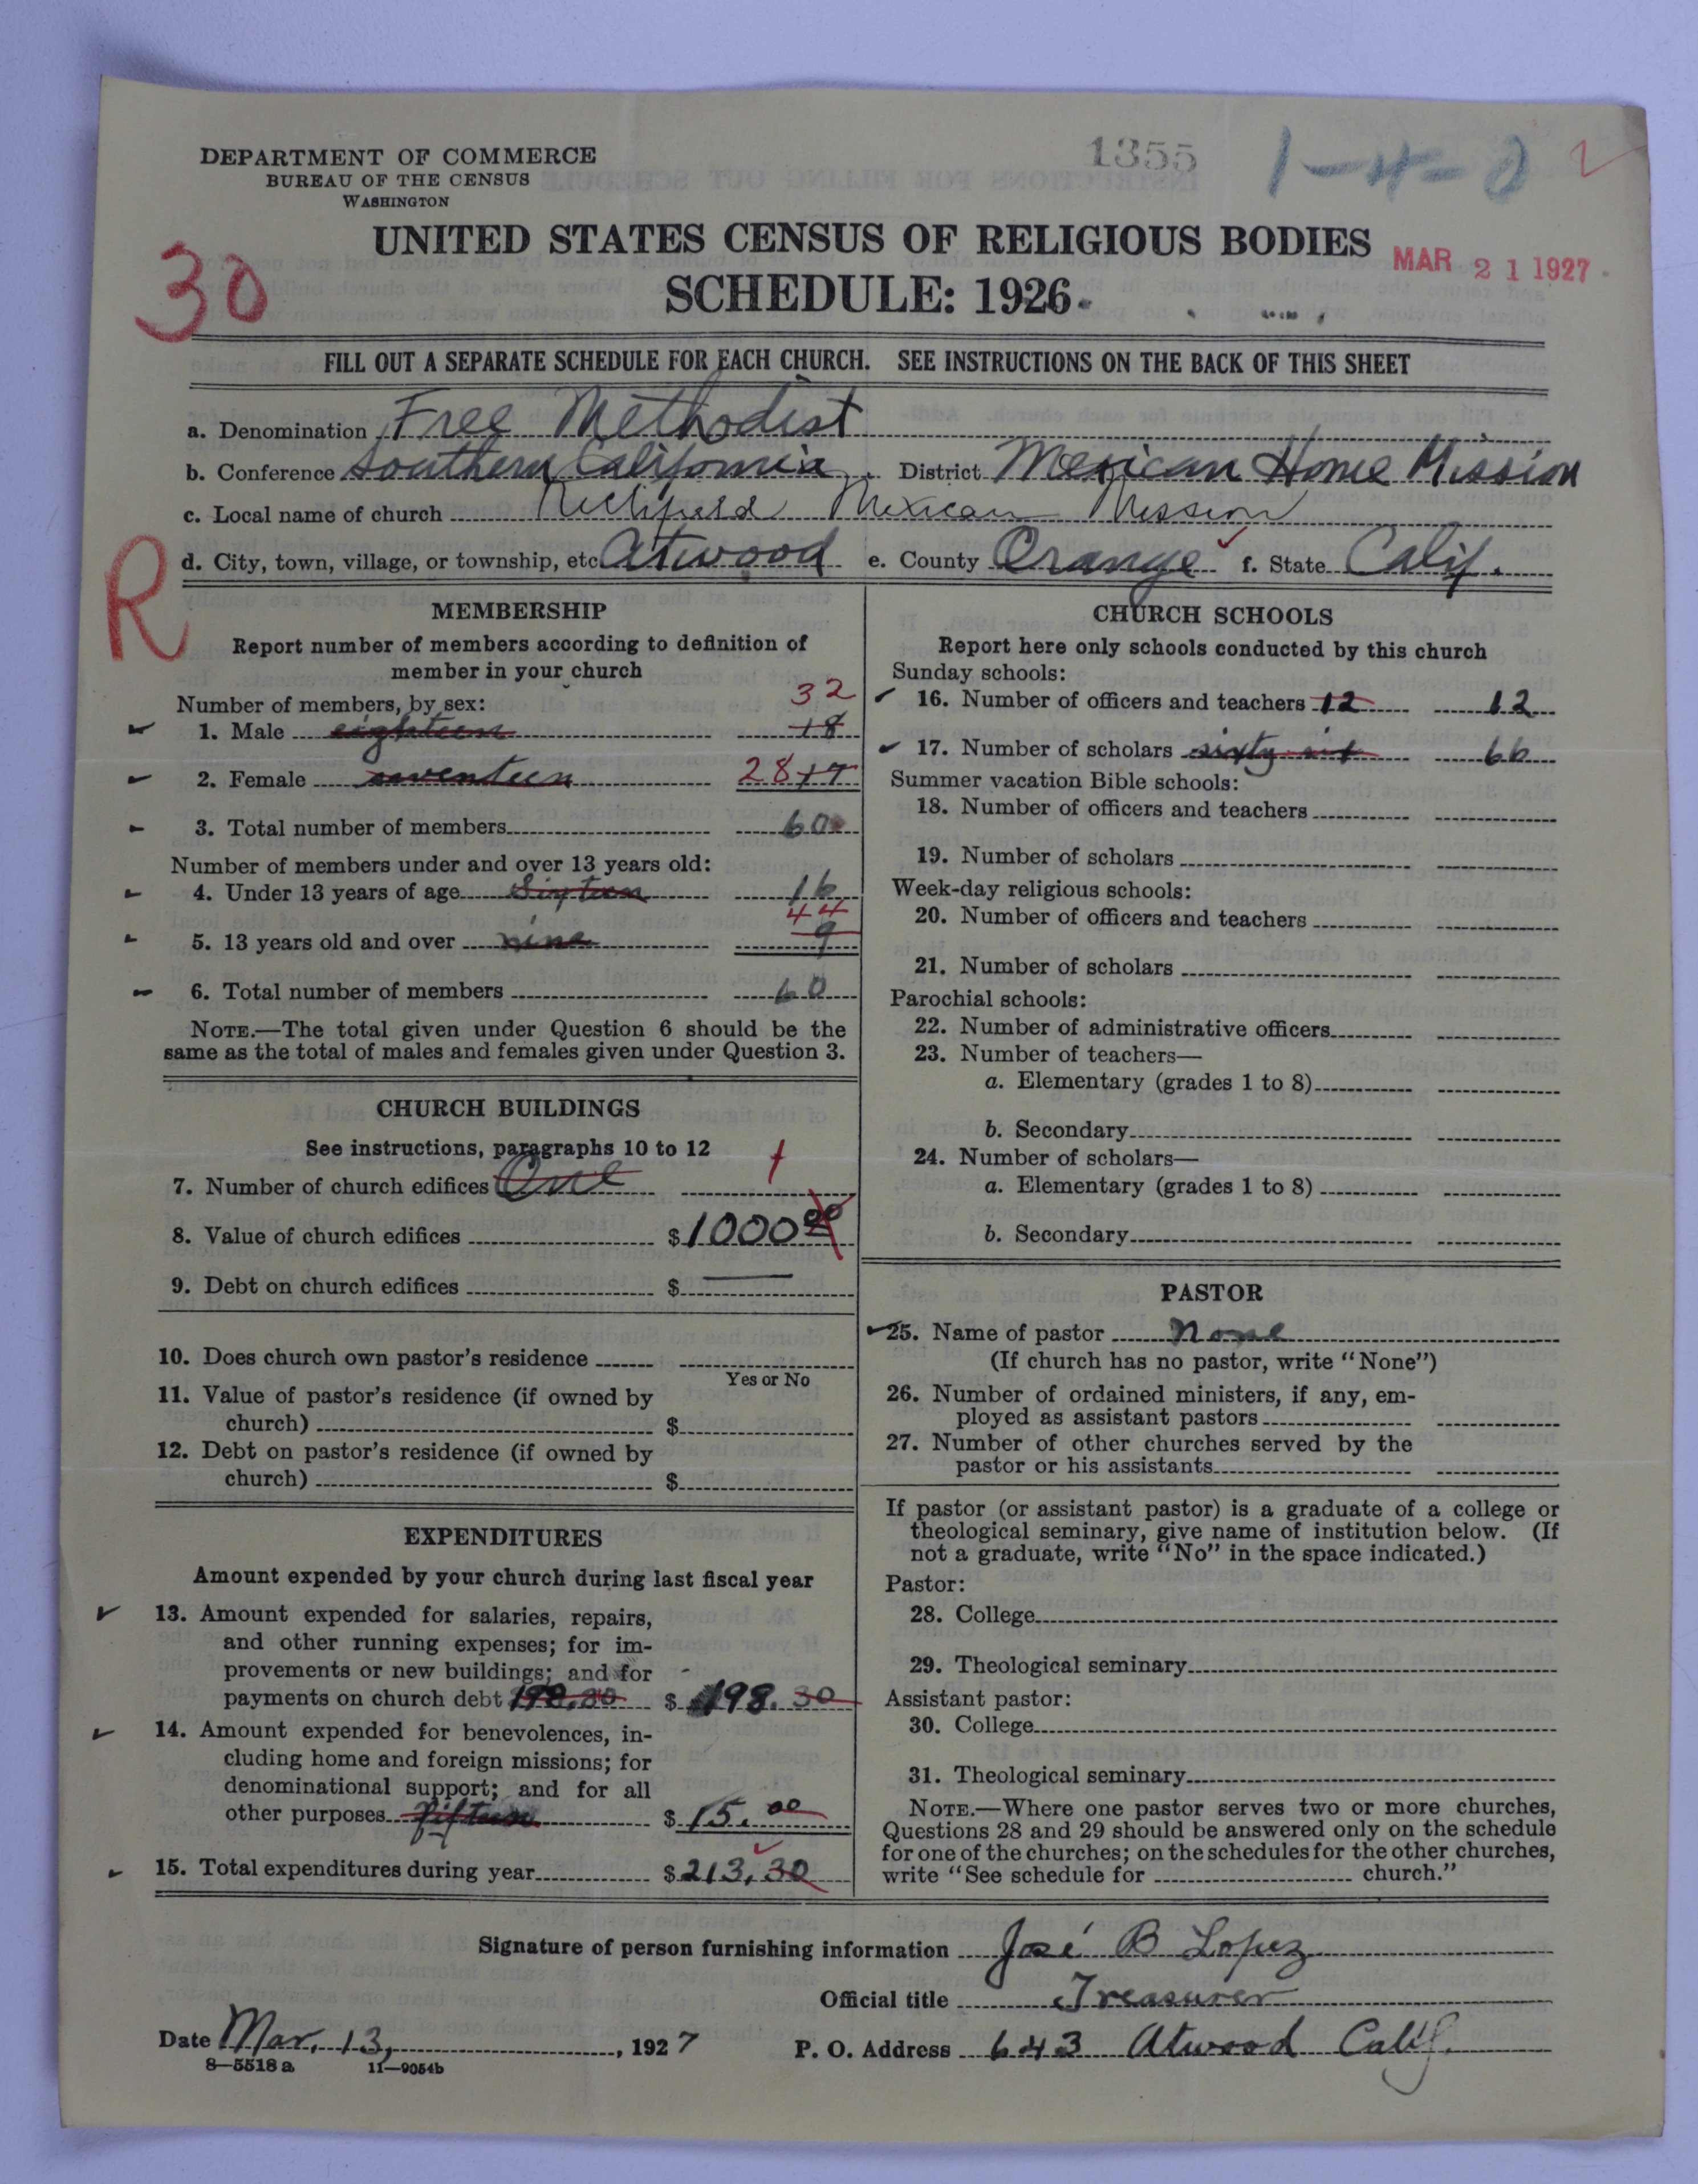 DEPARTMENT OF COMMERCE
BUREAU OF THE CENSUS
WASHINGTON
1355
1-4-0
UNITED STATES CENSUS OF RELIGIOUS BODIES
MAR 21 1927
30
SCHEDULE: 1926
FILL OUT A SEPARATE SCHEDULE FOR EACH CHURCH. SEE INSTRUCTIONS ON THE BACK OF THIS SHEET
a. Denomination Free Methodist
b. Conference Southern California District Mexican Home Mission
c. Local name of church Richfield Mexican Mission
d. City, town, village, or township, etc. Atwood e. County Orange f. State Calif.
R
MEMBERSHIP
Report number of members according to definition of
member in your church
Number of members, by sex:
32
1. Male eighteen 18
2. Female seventeen 28 17
3. Total number of members 60
Number of members under and over 13 years old:
4. Under 13 years of age Sixteen 16
44
5. 13 years old and over nine 9
6. Total number of members 60
NOTE.—The total given under Question 6 should be the
same as the total of males and females given under Question 3.
CHURCH BUILDINGS
See instructions, paragraphs 10 to 12
7. Number of church edifices One 1
8. Value of church edifices $ 1000 00
9. Debt on church edifices $ —
10. Does church own pastor's residence
Yes or No
11. Value of pastor's residence (if owned by
church) $
12. Debt on pastor's residence (if owned by
church) $
EXPENDITURES
Amount expended by your church during last fiscal year
13. Amount expended for salaries, repairs,
and other running expenses; for im-
provements or new buildings; and for
payments on church debt 198.30 $ 198.30
14. Amount expended for benevolences, in-
cluding home and foreign missions; for
denominational support; and for all
other purposes fifteen $ 15.00
15. Total expenditures during year $ 213.30
CHURCH SCHOOLS
Report here only schools conducted by this church
Sunday schools:
16. Number of officers and teachers 12 12
17. Number of scholars sixty six 66
Summer vacation Bible schools:
18. Number of officers and teachers
19. Number of scholars
Week-day religious schools:
20. Number of officers and teachers
21. Number of scholars
Parochial schools:
22. Number of administrative officers
23. Number of teachers—
a. Elementary (grades 1 to 8)
b. Secondary
24. Number of scholars—
a. Elementary (grades 1 to 8)
b. Secondary
PASTOR
25. Name of pastor none
(If church has no pastor, write "None")
26. Number of ordained ministers, if any, em-
ployed as assistant pastors
27. Number of other churches served by the
pastor or his assistants
If pastor (or assistant pastor) is a graduate of a college or
theological seminary, give name of institution below. (If
not a graduate, write "No" in the space indicated.)
Pastor:
28. College
29. Theological seminary
Assistant pastor:
30. College
31. Theological seminary
NOTE.—Where one pastor serves two or more churches,
Questions 28 and 29 should be answered only on the schedule
for one of the churches; on the schedules for the other churches,
write "See schedule for church."
Signature of person furnishing information José B Lopez
Official title Treasurer
Date Mar. 13, 1927 P. O. Address 643 Atwood Calif.
8—5518 a 11—9054b